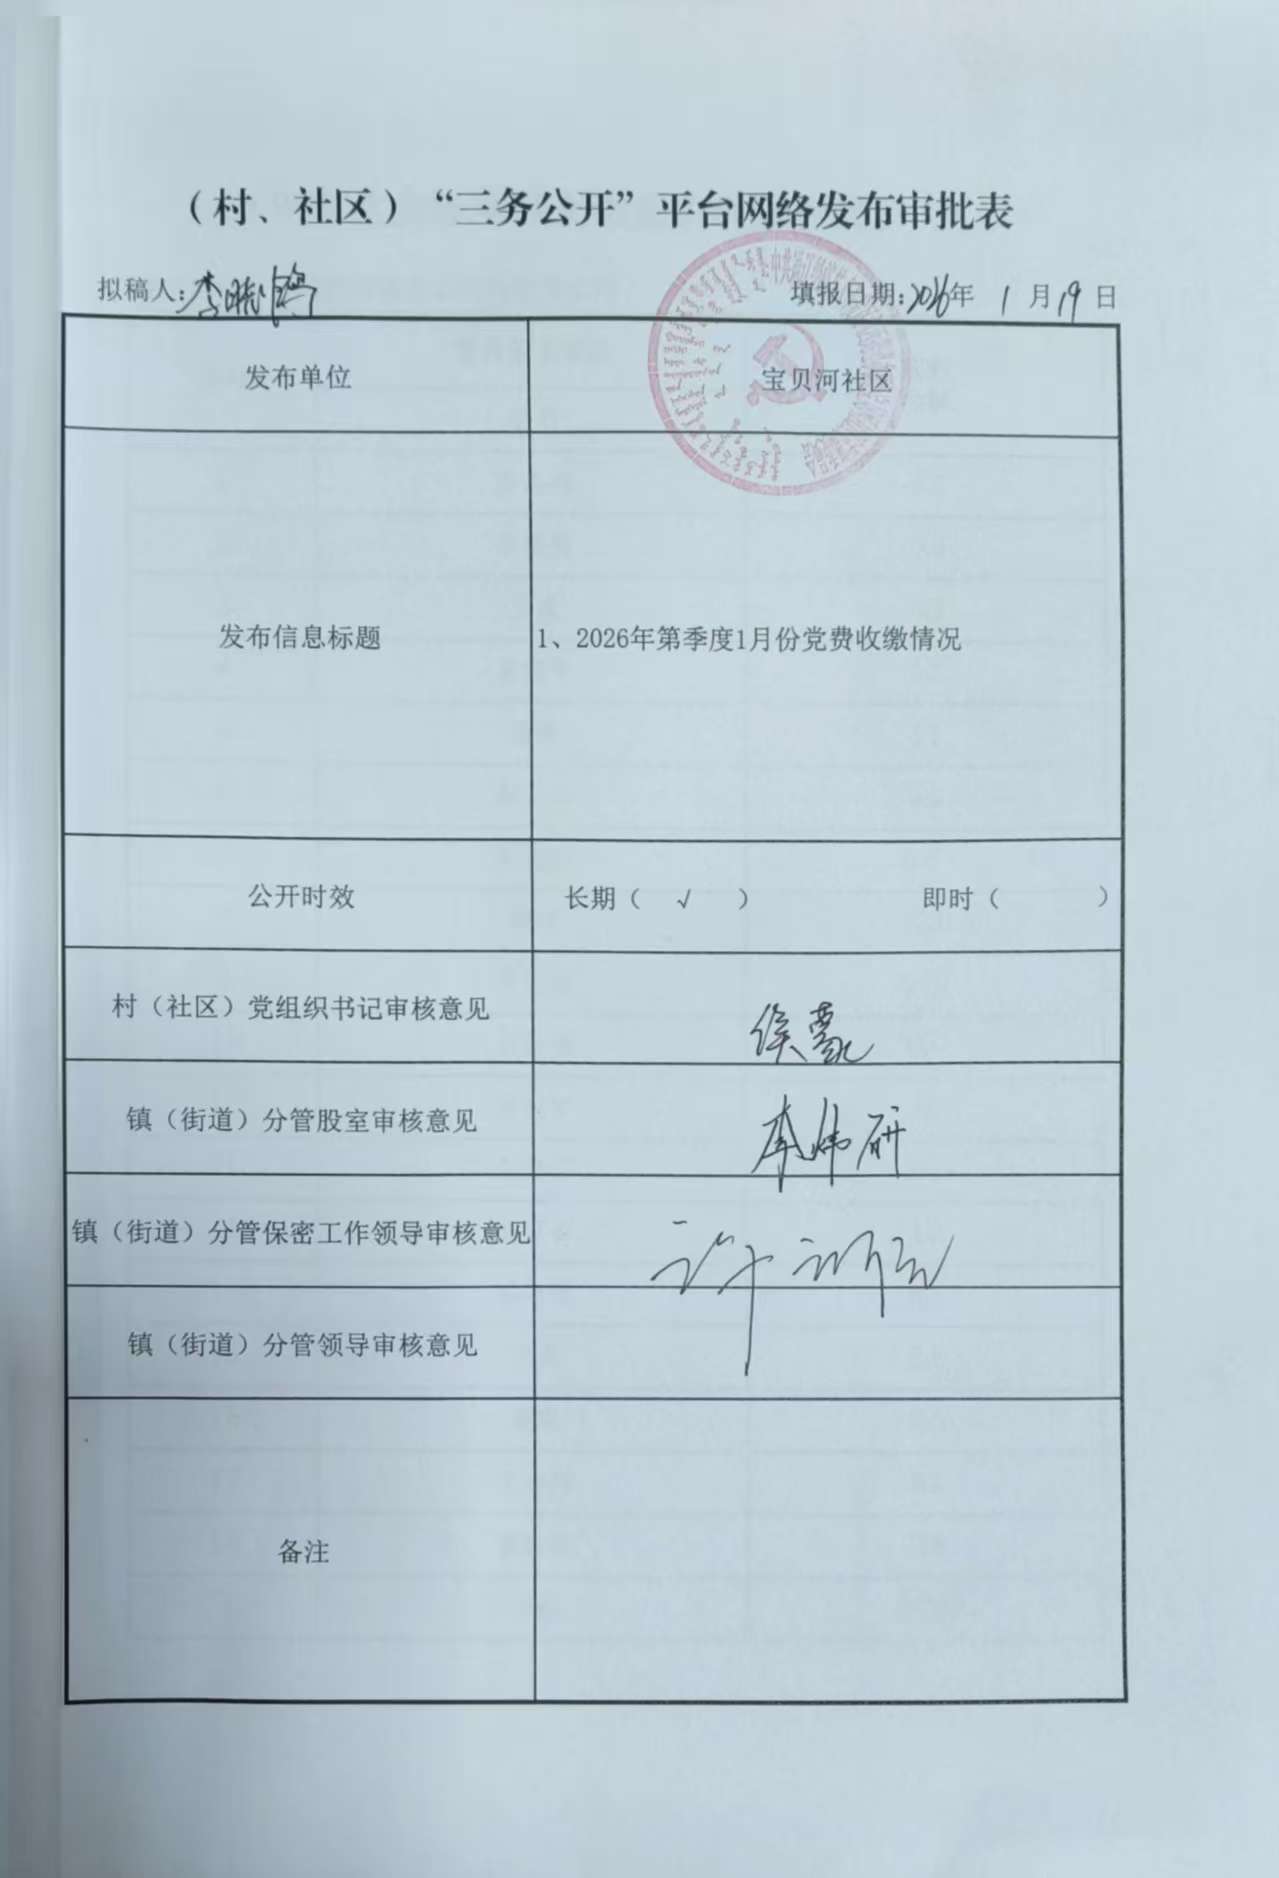 （村、社区）“三务公开”平台网络发布审批表
拟稿人: 填报日期: 2026年 1 月 19 日
发布单位 宝贝河社区
发布信息标题 1、2026年第季度1月份党费收缴情况
公开时效 长期（ √ ） 即时（ ）
村（社区）党组织书记审核意见
镇（街道）分管股室审核意见 李炜研
镇（街道）分管保密工作领导审核意见
镇（街道）分管领导审核意见
备注